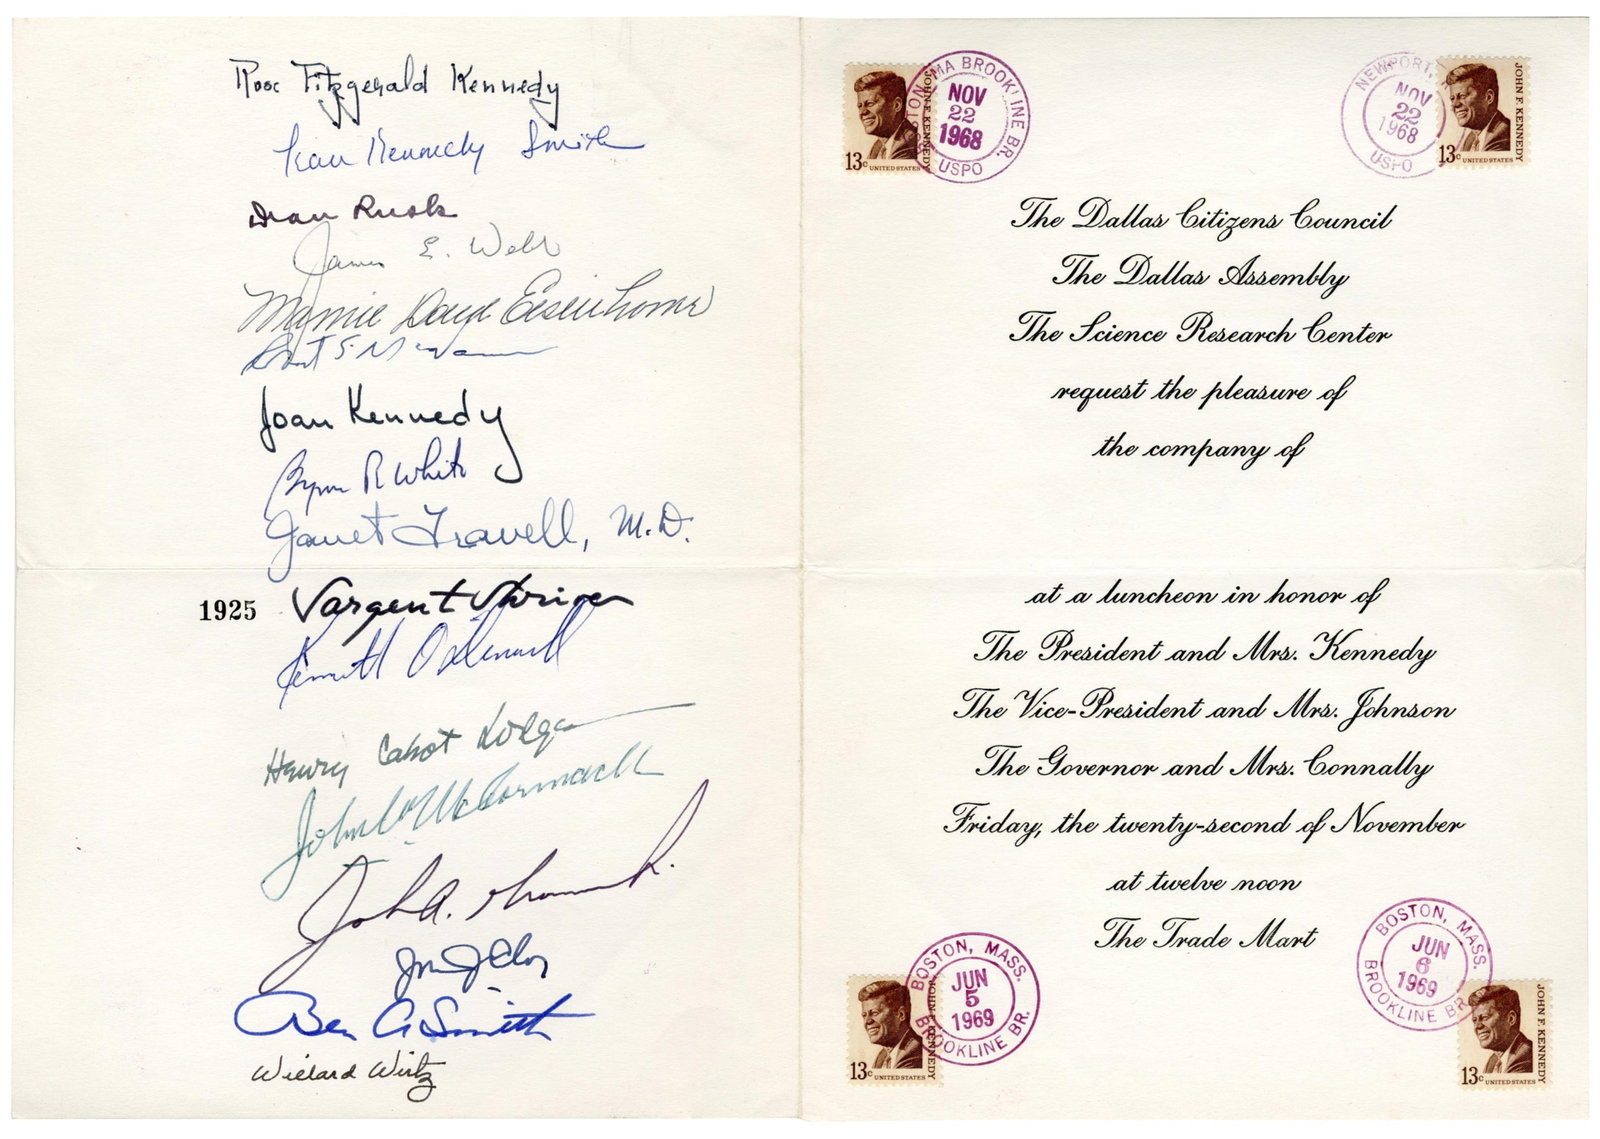 Rose Fitzgerald Kennedy
Jean Kennedy Smith
Dean Rusk
James E. Webb
Mamie Doud Eisenhower
Robert S. McNamara
Joan Kennedy
Byron R White
Janet Travell, M.D.
1925
Sargent Shriver
Kenneth O'Donnell
Henry Cabot Lodge
John W McCormack
John A.
Ben A Smith
Willard Wirtz
BOSTON, MA BROOKLINE BR.
NOV
22
1968
USPO
JOHN F. KENNEDY
13c UNITED STATES
NEWPORT,
NOV
22
1968
USPO
JOHN F. KENNEDY
13c UNITED STATES
The Dallas Citizens Council
The Dallas Assembly
The Science Research Center
request the pleasure of
the company of
at a luncheon in honor of
The President and Mrs. Kennedy
The Vice-President and Mrs. Johnson
The Governor and Mrs. Connally
Friday, the twenty-second of November
at twelve noon
The Trade Mart
BOSTON, MASS.
JUN
5
1969
BROOKLINE BR.
JOHN F. KENNEDY
13c UNITED STATES
BOSTON, MASS.
JUN
6
1969
BROOKLINE BR.
JOHN F. KENNEDY
13c UNITED STATES